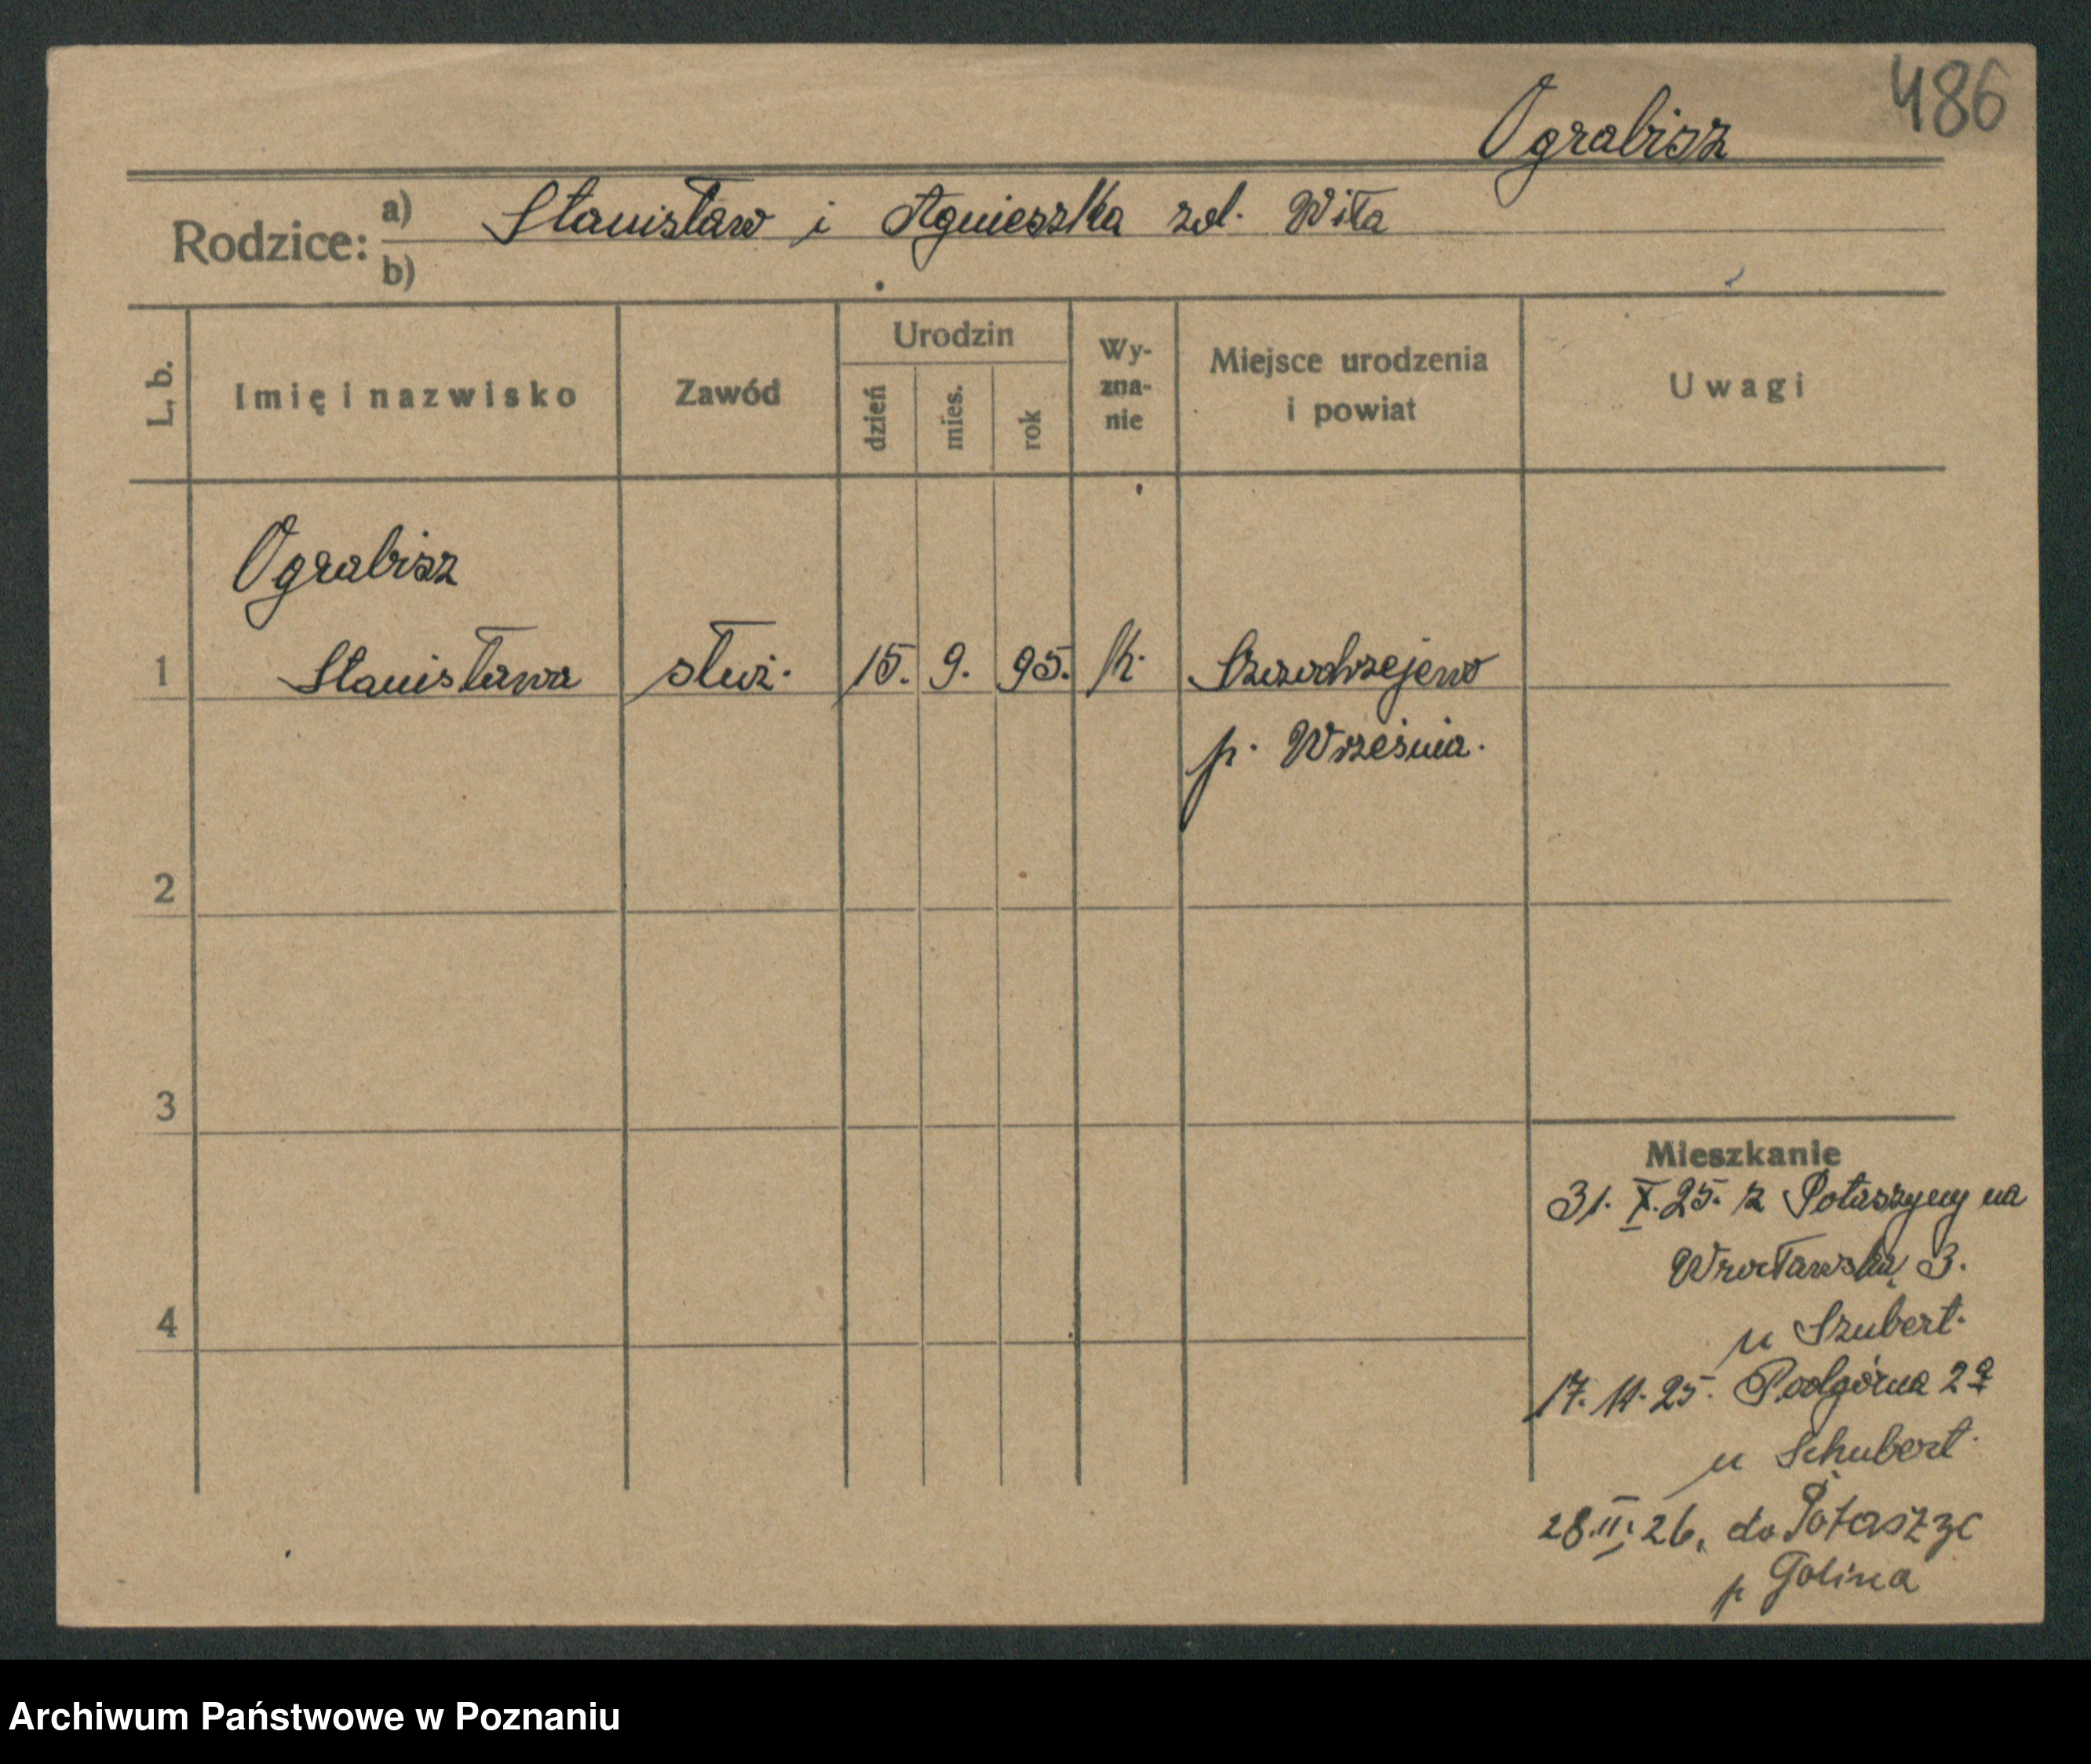 486
Ograbisz
Rodzice: a) Stanisław i Agnieszka zd. Wita
b)
L. b.
Imię i nazwisko
Zawód
Urodzin
dzień
mies.
rok
Wy-
zna-
nie
Miejsce urodzenia
i powiat
Uwagi
Ograbisz
1 Stanisława służ. 15. 9. 95. k.
p. Września.
2
3
4
Mieszkanie
31. X. 25. z Potaszyny na
Wrocławską 3.
u Szubert.
17. 11. 25. Podgórna 2a
u Schubert.
28.II.26. do
p Golina
Archiwum Państwowe w Poznaniu